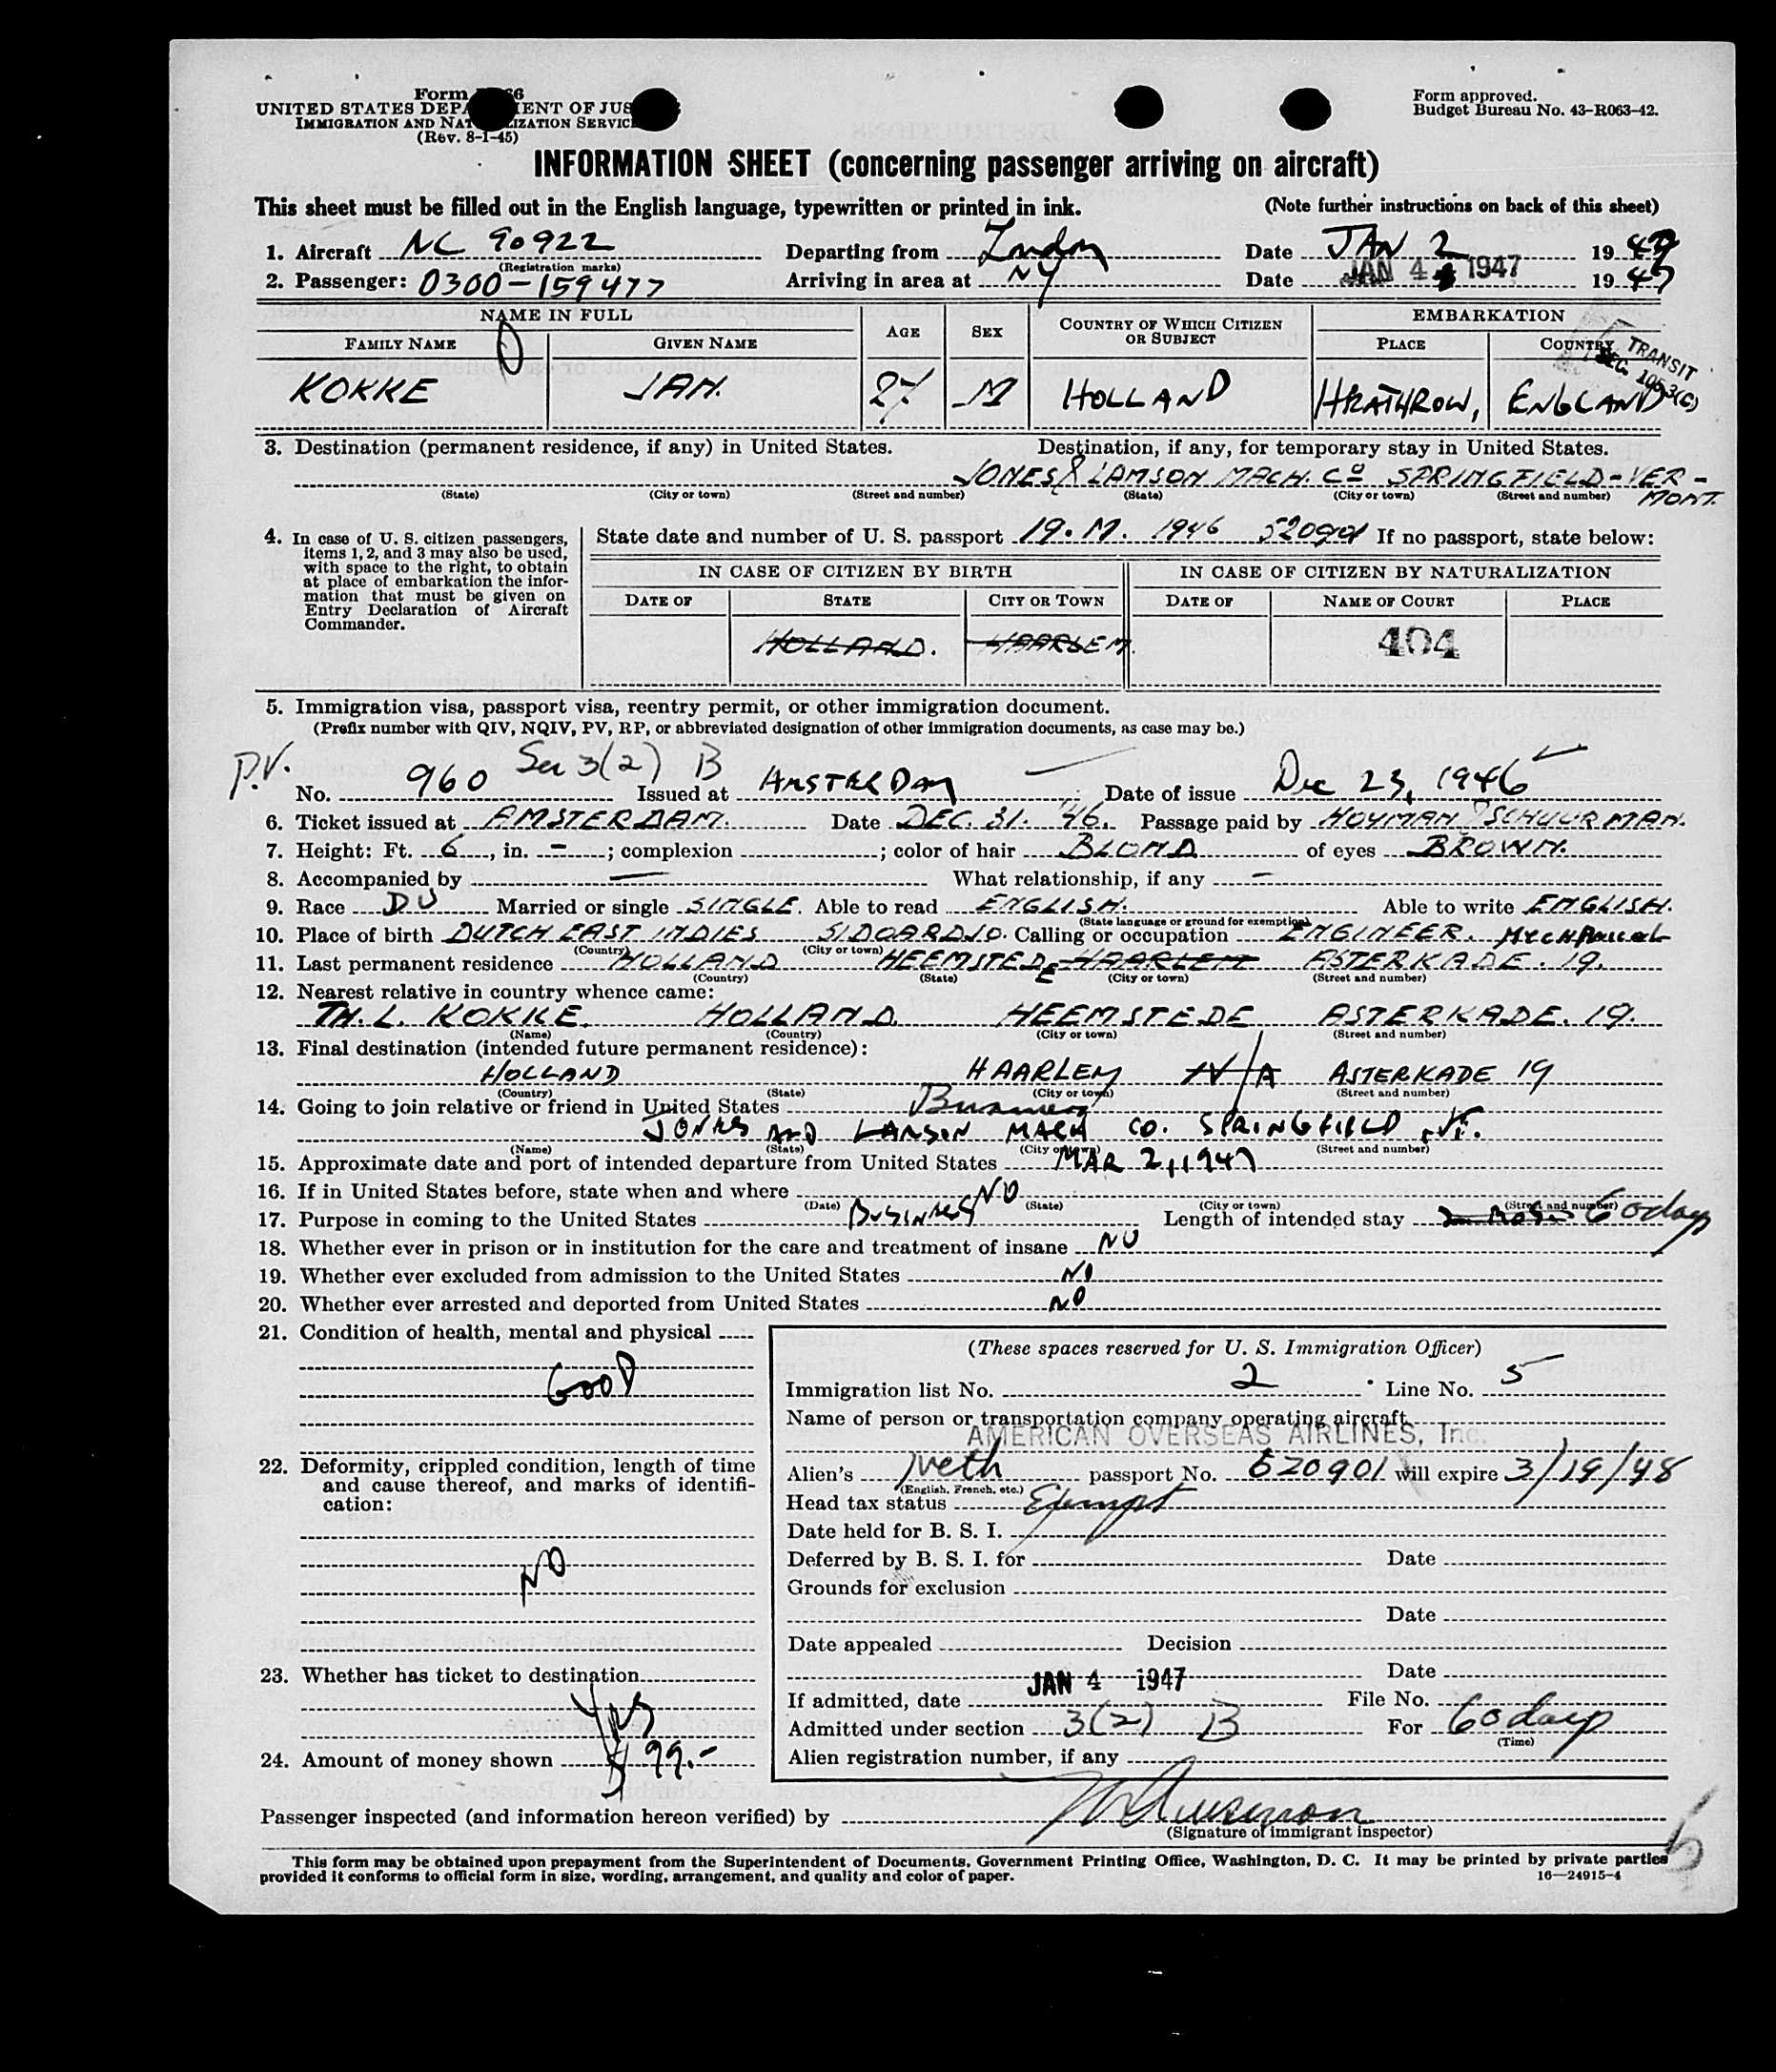 Form 66
UNITED STATES DEPA MENT OF JUS
IMMIGRATION AND NAT LIZATION SERVIC
(Rev. 8-1-45)
Form approved.
Budget Bureau No. 43-R063-42.
INFORMATION SHEET (concerning passenger arriving on aircraft)
This sheet must be filled out in the English language, typewritten or printed in ink. (Note further instructions on back of this sheet)
1. Aircraft NC 90922 Departing from London Date JAN 2 19 47
(Registration marks)
2. Passenger: 0300-159477 Arriving in area at NY Date JAN 4 1947 19 47
NAME IN FULL AGE SEX COUNTRY OF WHICH CITIZEN OR SUBJECT EMBARKATION
FAMILY NAME GIVEN NAME PLACE COUNTRY
TRANSIT
SEC. 105.3(C)
KOKKE JAN. 27 M HOLLAND HEATHROW, ENGLAND
3. Destination (permanent residence, if any) in United States. Destination, if any, for temporary stay in United States.
JONES & LAMSON MACH. Co SPRINGFIELD-VER-
MONT.
(State) (City or town) (Street and number) (State) (City or town) (Street and number)
4. In case of U. S. citizen passengers, items 1, 2, and 3 may also be used, with space to the right, to obtain at place of embarkation the information that must be given on Entry Declaration of Aircraft Commander.
State date and number of U. S. passport 19. M. 1946 520901 If no passport, state below:
IN CASE OF CITIZEN BY BIRTH IN CASE OF CITIZEN BY NATURALIZATION
DATE OF STATE CITY OR TOWN DATE OF NAME OF COURT PLACE
HOLLAND. HAARLEM. 404
5. Immigration visa, passport visa, reentry permit, or other immigration document.
(Prefix number with QIV, NQIV, PV, RP, or abbreviated designation of other immigration documents, as case may be.)
P.V. No. 960 Sec 3(2) B Issued at AMSTERDAM Date of issue Dec 23, 1946
6. Ticket issued at AMSTERDAM. Date DEC. 31. '46. Passage paid by HOYMAN SCHUURMAN.
7. Height: Ft. 6, in. -; complexion ; color of hair BLOND of eyes BROWN.
8. Accompanied by — What relationship, if any —
9. Race DU Married or single SINGLE. Able to read ENGLISH. Able to write ENGLISH.
(State language or ground for exemption)
10. Place of birth DUTCH EAST INDIES SIDOARDJO. Calling or occupation ENGINEER. Mechanical
(Country) (City or town)
11. Last permanent residence HOLLAND HEEMSTEDE HAARLEM ASTERKADE. 19.
(Country) (State) (City or town) (Street and number)
12. Nearest relative in country whence came:
TH. L. KOKKE. HOLLAND HEEMSTEDE ASTERKADE. 19.
(Name) (Country) (City or town) (Street and number)
13. Final destination (intended future permanent residence):
HOLLAND HAARLEM N/A ASTERKADE 19
(Country) (State) (City or town) (Street and number)
14. Going to join relative or friend in United States Business
JONES AND LAMSON MACH CO. SPRINGFIELD, VT.
(Name) (State) (City or town) (Street and number)
15. Approximate date and port of intended departure from United States MAR 2, 1947
16. If in United States before, state when and where NO
(Date) (State) (City or town) (Street and number)
17. Purpose in coming to the United States BUSINESS Length of intended stay 60 days
18. Whether ever in prison or in institution for the care and treatment of insane NO
19. Whether ever excluded from admission to the United States NO
20. Whether ever arrested and deported from United States NO
21. Condition of health, mental and physical
GOOD
22. Deformity, crippled condition, length of time and cause thereof, and marks of identification:
NO
23. Whether has ticket to destination
YES
24. Amount of money shown $ 99.-
(These spaces reserved for U. S. Immigration Officer)
Immigration list No. 2 Line No. 5
Name of person or transportation company operating aircraft
AMERICAN OVERSEAS AIRLINES, Inc.
Alien's Neth passport No. 520901 will expire 3/19/48
(English, French, etc.)
Head tax status Exempt
Date held for B. S. I.
Deferred by B. S. I. for Date
Grounds for exclusion
Date
Date appealed Decision
Date
If admitted, date JAN 4 1947 File No.
Admitted under section 3(2) B For 60 days
(Time)
Alien registration number, if any
Passenger inspected (and information hereon verified) by
(Signature of immigrant inspector)
This form may be obtained upon prepayment from the Superintendent of Documents, Government Printing Office, Washington, D. C. It may be printed by private parties
provided it conforms to official form in size, wording, arrangement, and quality and color of paper. 16—24915-4